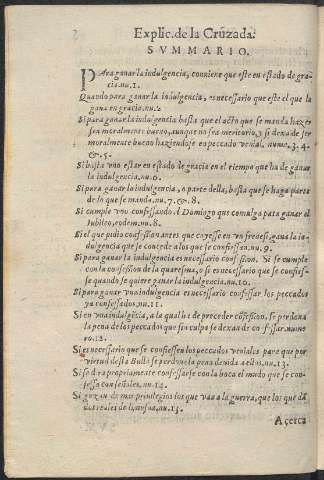 2
Explic. de la Cruzada.
SVMMARIO.
PAra ganar la indulgencia, conuiene que este en estado de gra-
cia. nu. 1.
Quando para ganar la indulgencia, es necessario que este el que la
gana en gracia. nu. 2.
Si para ganar la indulgencia basta que el acto que se manda hazer
sea moralmente bueno, aunque no sea meritorio, y si dexa de ser
moralmente bueno haziendose en peccado venial. nume. 3. 4.
&. 5.
Si basta uno estar en estado de gracia en el tiempo que ha de ganar
la indulgencia. nu. 6.
Si para ganar la indulgencia, o parte della, basta que se haga parte
de lo que se manda. nu. 7. &. 8.
Si cumple uno confessando el Domingo que comulga para ganar el
Iubileo, eodem. nu. 8.
Si el que pidio confession antes que cayesse en frenesi, gana la in-
dulgencia que se concede a los que se confiessan. nu. 9.
Si para ganar la indulgencia es necessario confession. Si se cumple
con la confession de la quaresma, o si es necessario que se confies-
se quando se quiere ganar la indulgencia. nu. 10.
Si para ganar una indulgencia es necessario confessar los peccados
ya confessados. nu. 11.
Si en una indulgencia, a la qual ha de preceder confession, se perdona
la pena de los peccados que sin culpa se dexan de confessar. nume-
ro. 12.
Si es necessario que se confiessen los peccados veniales para que por
virtud desta Bulla se perdone la pena deuida a ellos. nu. 13.
Si se dira propriamente confessarse con la boca el mudo que se con-
fiessa con señales. nu. 14.
Si gozan de mas priuilegios los que van a la guerra, que los que dã
dos reales de limosna. nu. 15.
Açerca